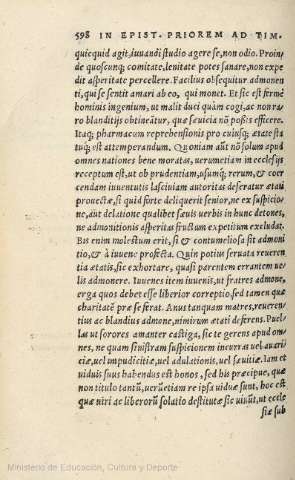 598 IN EPIST. PRIOREM AD TIM.
quicquid agit, iuuandi studio agere se, non odio. Proin/
de quoscunq; comitate, lenitate potes sanare, non expe
dit asperitate percellere. Facilius obsequitur admonen
ti, qui se sentit amari ab eo, qui monet. Et sic est firmè
hominis ingenium, ut malit duci quàm cogi, ac non ra/
ro blanditijs obtineatur, quæ sæuicia nō poßis efficere.
Itaq; pharmacum reprehensionis pro cuiusq; ætate sta
tuq; est attemperandum. Quoniam aūt nō solum apud
omnes nationes bene moratas, uerumetiam in ecclesijs
receptum est, ut ob prudentiam, usumq; rerum, & coer
cendam iuuentutis lasciuiam autoritas deferatur ætati
prouectæ, si quid forte deliquerit senior, ne ex suspicio/
ne, aut delatione qualibet sæuis uerbis in hunc detones,
ne admonitionis asperitas fructum ex petitum excludat.
Bis enim molestum erit, si & contumeliosa sit admoni
tio, & à iuuene profecta. Quin potius seruata reueren
tia ætatis, sic exhortare, quasi parentem errantem ue/
lis admonere. Iuuenes item iuuenis, ut fratres admone,
erga quos debet esse liberior correptio, sed tamen quæ
charitatē præ se ferat. Anus tanquam matres, reueren/
tius ac blandius admone, nimirum ætati deferens. Puel
las ut sorores amanter castiga, sic te gerens apud om/
nes, ne quam sinistram suspicionem incurras uel auari/
ciæ, uel impudicitiæ, uel adulationis, uel sæuitiæ. Iam et
uiduis suus habendus est honos, sed his præcipue, quæ
non titulo tantū, uerūetiam re ipsa uiduæ sunt, hoc est
quæ uiri ac liberorū solatio destitutæ sic uiūūt, ut eccle
siæ sub
Ministerio de Educación, Cultura y Deporte